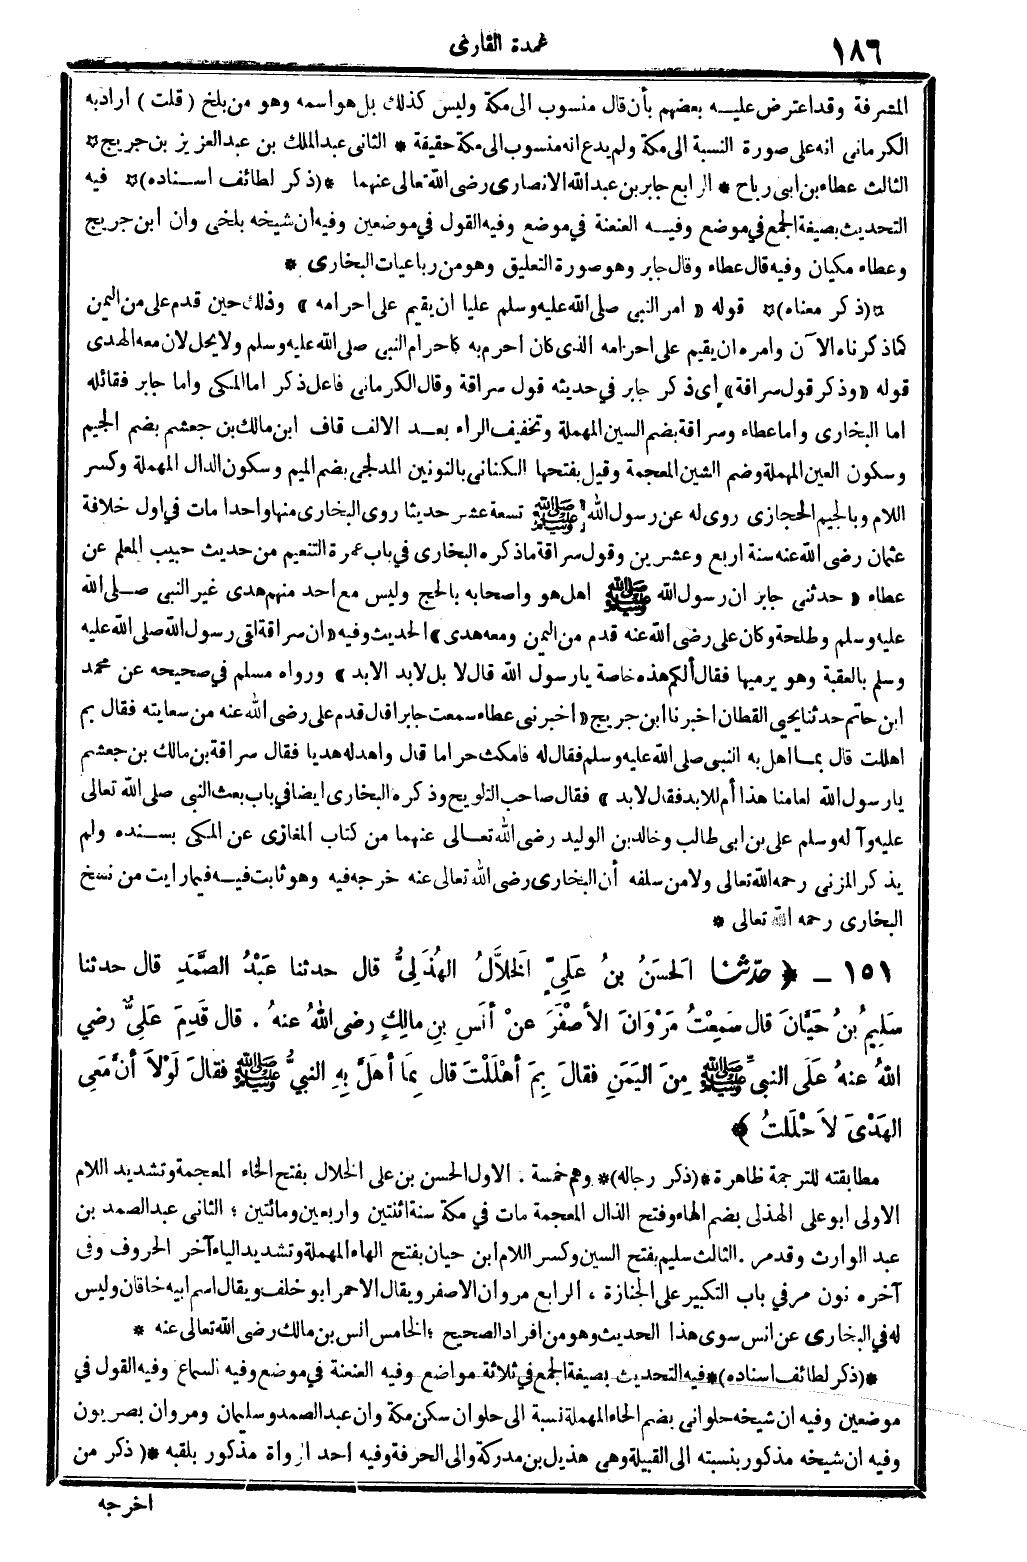 ١٨٦
عمدة القارئ
المشرفة وقد اعترض عليه بعضهم بأن قال منسوب الى مكة وليس كذلك بل هو اسمه وهو من بلخ ( قلت ) اراد به
الكرمانى انه على صورة النسبة الى مكة ولم يدع انه منسوب الى مكة حقيقة * الثانى عبد الملك بن عبد العزيز بن جريج *
الثالث عطاء بن ابى رباح * الرابع جابر بن عبد الله الانصارى رضى الله تعالى عنهما *(ذكر لطائف اسناده)* فيه
التحديث بصيغة الجمع في موضع وفيه العنعنة في موضع وفيه القول في موضعين وفيه ان شيخه بلخى وان ابن جريج
وعطاء مكيان وفيه قال عطاء وقال جابر وهو صورة التعليق وهو من رباعيات البخارى *
*(ذكر معناه)* قوله « امر النبى صلى الله عليه وسلم عليا ان يقيم على احرامه » وذلك حين قدم على من اليمن
كما ذكرناه الآن وامره ان يقيم على احرامه الذى كان احرم به كاحرام النبى صلى الله عليه وسلم ولا يحل لان معه الهدى
قوله «وذكر قول سراقة» اى ذكر جابر في حديثه قول سراقة وقال الكرمانى فاعل ذكر اما المكى واما جابر فقائله
اما البخارى واما عطاء وسراقة بضم السين المهملة وتخفيف الراء بعد الالف قاف ابن مالك بن جعشم بضم الجيم
وسكون العين المهملة وضم الشين المعجمة وقيل بفتحها الكنانى بالنونين المدلجى بضم الميم وسكون الدال المهملة وكسر
اللام وبالجيم الحجازى روى له عن رسول الله ﷺ تسعة عشر حديثا روى البخارى منها واحدا مات في اول خلافة
عثمان رضى الله عنه سنة اربع وعشرين وقول سراقة ما ذكره البخارى في باب عمرة التنعيم من حديث حبيب المعلم عن
عطاء « حدثنى جابر ان رسول الله ﷺ اهل هو واصحابه بالحج وليس مع احد منهم هدى غير النبى صلى الله
عليه وسلم وطلحة وكان على رضى الله عنه قدم من اليمن ومعه هدى » الحديث وفيه « ان سراقة لقى رسول الله صلى الله عليه
وسلم بالعقبة وهو يرميها فقال ألكم هذه خاصة يا رسول الله قال لا بل لابد الابد » ورواه مسلم في صحيحه عن محمد
ابن حاتم حدثنا يحيى القطان اخبرنا ابن جريج « اخبرنى عطاء سمعت جابرا قال قدم على رضى الله عنه من سعايته فقال بم
اهللت قال بما اهل به النبى صلى الله عليه وسلم فقال له فامكث حراما قال واهدله هديا فقال سراقة بن مالك بن جعشم
يا رسول الله لعامنا هذا أم للابد فقال لابد » فقال صاحب التلويح وذكره البخارى ايضا في باب بعث النبى صلى الله تعالى
عليه وآله وسلم على بن ابى طالب وخالد بن الوليد رضى الله تعالى عنهما من كتاب المغازى عن المكى بسنده ولم
يذكر المزنى رحمه الله تعالى ولا من سلفه أن البخارى رضى الله تعالى عنه خرجه فيه وهو ثابت فيه فيما رايت من نسخ
البخارى رحمه الله تعالى *
١٥١ ــ ﴿ حدثنا الحَسَنُ بنُ عَلِيٍّ الخَلاَّلُ الهُذَلِىُّ قال حدثنا عَبْدُ الصَّمَدِ قال حدثنا
سَلِيمُ بنُ حَيَّانَ قال سَمِعْتُ مَرْوَانَ الأصْفَرَ عنْ أنَسِ بنِ مالِكٍ رضى اللهُ عنهُ . قال قَدِمَ عَلِيٌّ رضي
اللهُ عنهُ عَلَى النبىِّ ﷺ مِنَ اليَمَنِ فقالَ بِمَ أهْلَلْتَ قال بِمَا أهَلَّ بِهِ النبيُّ ﷺ فقالَ لَوْلاَ أنَّ مَعِى
الهَدْىَ لاَحْلَلتُ ﴾
مطابقته للترجمة ظاهرة *(ذكر رجاله)* وهم خمسة . الاول الحسن بن على الخلال بفتح الخاء المعجمة وتشديد اللام
الاولى ابو على الهذلى بضم الهاء وفتح الذال المعجمة مات في مكة سنة اثنتين واربعين ومائتين ؛ الثانى عبد الصمد بن
عبد الوارث وقد مر . الثالث سليم بفتح السين وكسر اللام ابن حيان بفتح الهاء المهملة وتشديد الياء آخر الحروف وفى
آخره نون مر في باب التكبير على الجنازة ، الرابع مروان الاصفر ويقال الاحمر ابو خلف ويقال اسم ابيه خاقان وليس
له في البخارى عن انس سوى هذا الحديث وهو من افراد الصحيح ؛ الخامس انس بن مالك رضى الله تعالى عنه *
*(ذكر لطائف اسناده)* فيه التحديث بصيغة الجمع في ثلاثة مواضع وفيه العنعنة في موضع وفيه السماع وفيه القول في
موضعين وفيه ان شيخه حلوانى بضم الحاء المهملة نسبة الى حلوان سكن مكة وان عبد الصمد وسليمان ومروان بصريون
وفيه ان شيخه مذكور بنسبته الى القبيلة وهى هذيل بن مدركة والى الحرفة وفيه احد الرواة مذكور بلقبه *( ذكر من
اخرجه